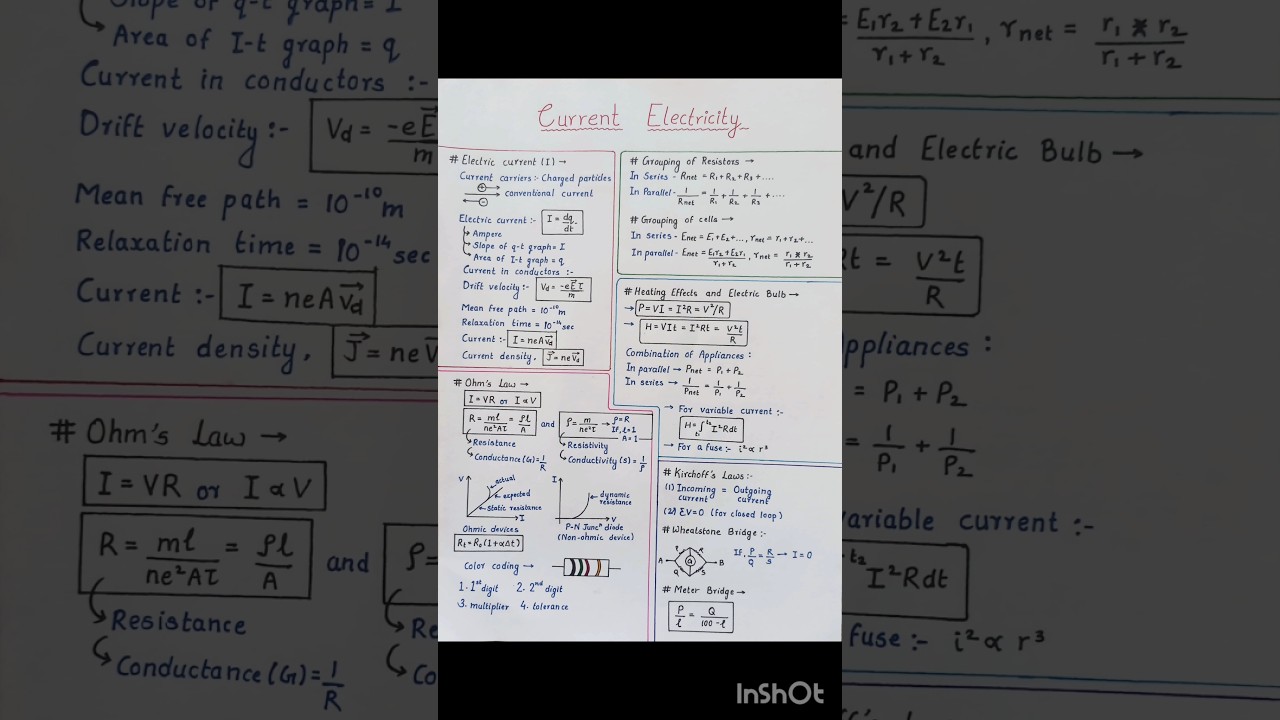 Current Electricity
# Electric current (I) →
Current carriers :- Charged particles
conventional current
Electric current :- I = dq/dt
Ampere
Slope of q-t graph = I
Area of I-t graph = q
Current in conductors :-
Drift velocity :- Vd = -eE⃗τ/m
Mean free path = 10⁻¹⁰m
Relaxation time = 10⁻¹⁴sec
Current :- I = neAv⃗d
Current density, J⃗ = nev⃗d
# Ohm's Law →
I = VR or I ∝ V
R = ml/ne²Aτ = ρl/A and ρ = m/ne²τ → ρ=R
If, l=1
A=1
Resistance
Conductance (G) = 1/R
Resistivity
Conductivity (S) = 1/ρ
V
actual
expected
static resistance
I
I
dynamic resistance
V
Ohmic devices
P-N Juncⁿ diode
(Non-ohmic device)
Rt = R₀(1+αΔt)
Color coding →
1. 1st digit 2. 2nd digit
3. multiplier 4. tolerance
# Grouping of Resistors →
In Series - Rnet = R₁ + R₂ + R₃ + ....
In Parallel - 1/Rnet = 1/R₁ + 1/R₂ + 1/R₃ + ....
# Grouping of cells →
In series - Enet = E₁ + E₂ + ..., rnet = r₁ + r₂ + ...
In parallel - Enet = E₁r₂ + E₂r₁/r₁ + r₂, rnet = r₁ * r₂/r₁ + r₂
# Heating Effects and Electric Bulb →
→ P = VI = I²R = V²/R
→ H = VIt = I²Rt = V²t/R
Combination of Appliances :
In parallel → Pnet = P₁ + P₂
In series → 1/Pnet = 1/P₁ + 1/P₂
→ For variable current :-
H = ∫t₁t₂ I²Rdt
→ For a fuse :- i² ∝ r³
# Kirchoff's Laws :-
(1) Incoming current = Outgoing current
(2) ΣV=0 (for closed loop)
# Wheatstone Bridge :-
A
B
Q
S
G
If, P/Q = R/S → I = 0
# Meter Bridge →
P/l = Q/100-l
InShOt